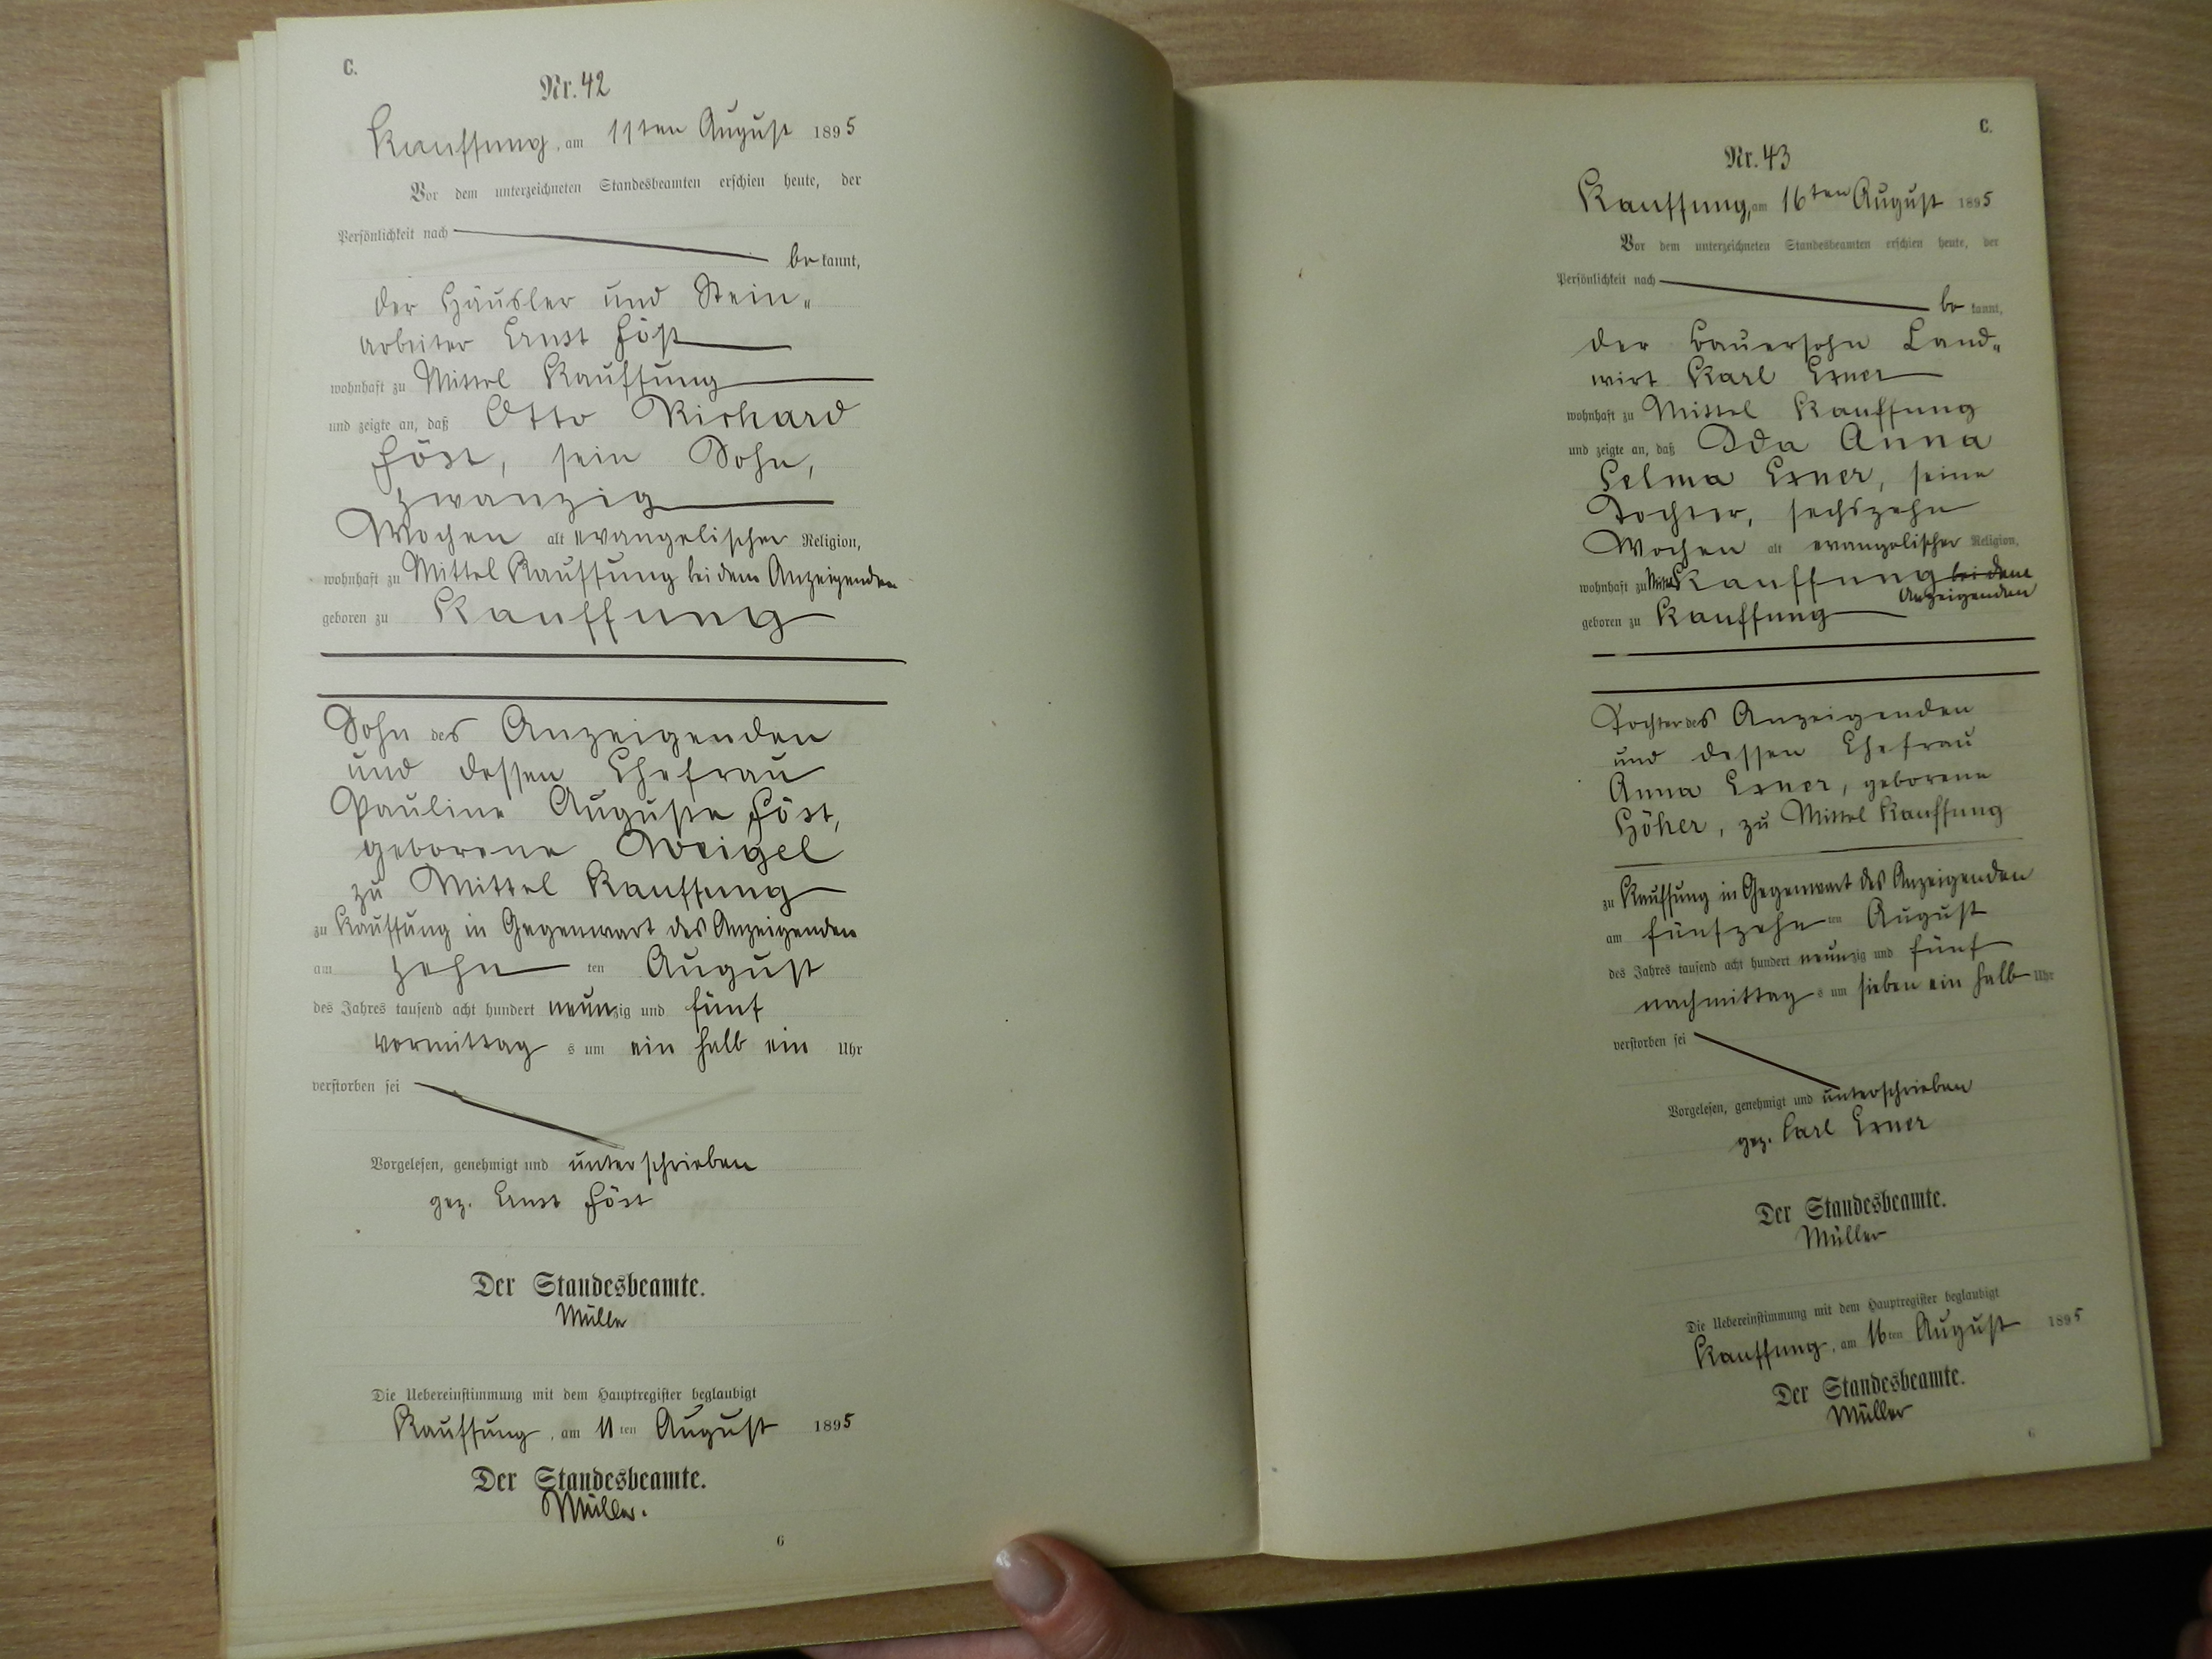 C.
Nr. 42
Kauffung, am 11ten August 1895
Vor dem unterzeichneten Standesbeamten erschien heute, der
Persönlichkeit nach
bekannt,
der Häusler und Stein-
arbeiter Ernst Föst
wohnhaft zu Mittel Kauffung
und zeigte an, daß Otto Richard
Föst, sein Sohn,
zwanzig
Wochen alt evangelischer Religion,
wohnhaft zu Mittel Kauffung bei dem Anzeigenden
geboren zu Kauffung
Sohn des Anzeigenden
und dessen Ehefrau
Pauline Auguste Föst,
geborene Weigel
zu Mittel Kauffung
zu Kauffung in Gegenwart des Anzeigenden
am zehn ten August
des Jahres tausend acht hundert neunzig und fünf
vormittags um ein halb ein Uhr
verstorben sei
Vorgelesen, genehmigt und unterschrieben
gez. Ernst Föst
Der Standesbeamte.
Müller
Die Uebereinstimmung mit dem Hauptregister beglaubigt
Kauffung, am 11ten August 1895
Der Standesbeamte.
Müller.
6
C.
Nr. 43
Kauffung, am 16ten August 1895
Vor dem unterzeichneten Standesbeamten erschien heute, der
Persönlichkeit nach
bekannt,
der Bauersohn Land-
wirt Karl Exner
wohnhaft zu Mittel Kauffung
und zeigte an, daß Ida Anna
Selma Exner, seine
Tochter, sechszehn
Wochen alt evangelischer Religion,
wohnhaft zu Mittel Kauffung bei dem
Anzeigenden
geboren zu Kauffung
Tochter des Anzeigenden
und dessen Ehefrau
Anna Exner, geborene
Höher, zu Mittel Kauffung
zu Kauffung in Gegenwart des Anzeigenden
am fünfzehn ten August
des Jahres tausend acht hundert neunzig und fünf
nachmittags um sieben ein halb Uhr
verstorben sei
Vorgelesen, genehmigt und unterschrieben
gez. Carl Exner
Der Standesbeamte.
Müller
Die Uebereinstimmung mit dem Hauptregister beglaubigt
Kauffung, am 16ten August 1895
Der Standesbeamte.
Müller
6